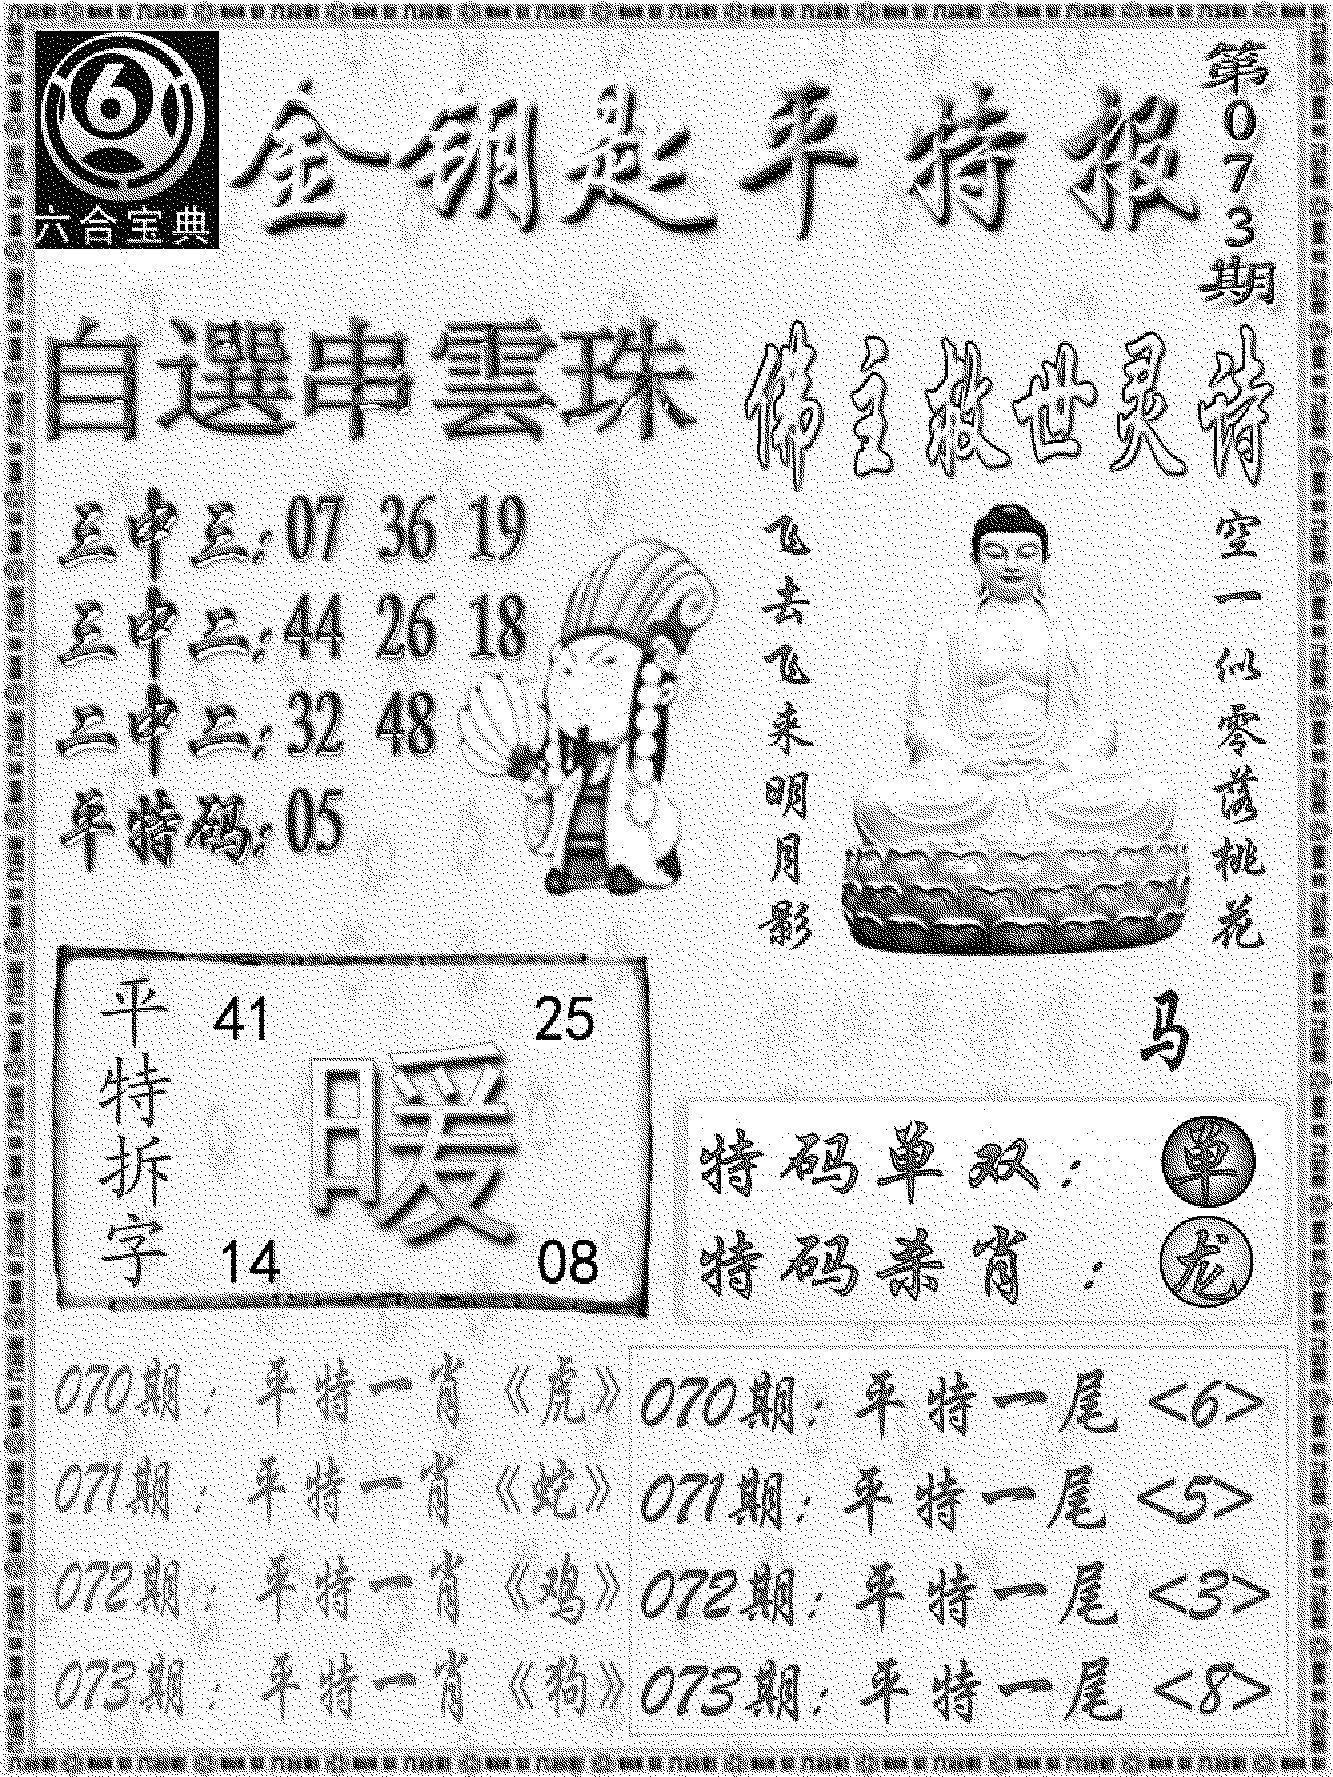 6
六合宝典
金钥匙平特报
第073期
自選串雲珠
三中三:07 36 19
三中二:44 26 18
二中二:32 48
平特码:05
佛主救世灵诗
空一似零落桃花
飞去飞来明月影
马
平特拆字
41 25
暖
14 08
特码单双:单
特码杀肖:龙
070期:平特一肖《虎》
071期:平特一肖《蛇》
072期:平特一肖《鸡》
073期:平特一肖《狗》
070期:平特一尾<6>
071期:平特一尾<5>
072期:平特一尾<3>
073期:平特一尾<8>